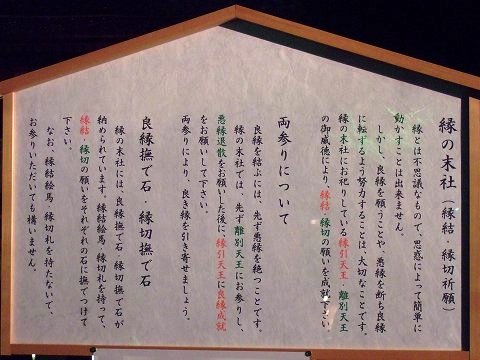 縁の末社（縁結・縁切祈願）
縁とは不思議なもので、思惑によって簡単に
動かすことは出来ません。
しかし、良縁を願うことや、悪縁を断ち良縁
に転ずるよう努力することは、大切なことです。
縁の末社にお祀りしている縁引天王・離別天王
の御威徳により、縁結・縁切の願いを成就下さい。
両参りについて
良縁を結ぶには、先ず悪縁を絶つことです。
縁の末社では、先ず離別天王にお参りし、
悪縁退散をお願いした後に、縁引天王に良縁成就
をお願いして下さい。
両参りにより、良き縁を引き寄せましょう。
良縁撫で石・縁切撫で石
縁の末社には、良縁撫で石 縁切撫で石が
納められています。縁結絵馬・縁切札を持って、
縁結・縁切の願いをそれぞれの石に撫でつけて
下さい。
なお、縁結絵馬・縁切札を持たないで、
お参りいただいても構いません。